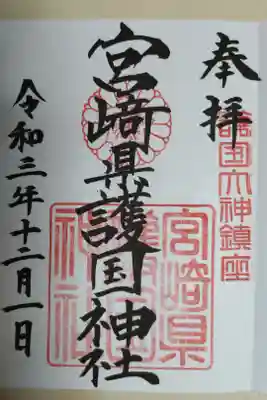 奉拝
護国大神鎮座
宮﨑県護国神社
宮崎県護国神社
令和三年十二月一日